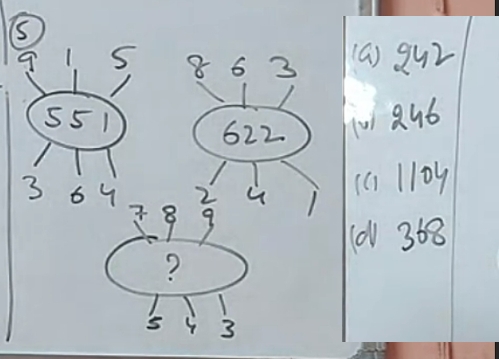 (5)
9 1 5
551
3 6 4
8 6 3
622
2 4 1
7 8 9
?
5 4 3
(a) 242
(b) 246
(c) 1104
(d) 368